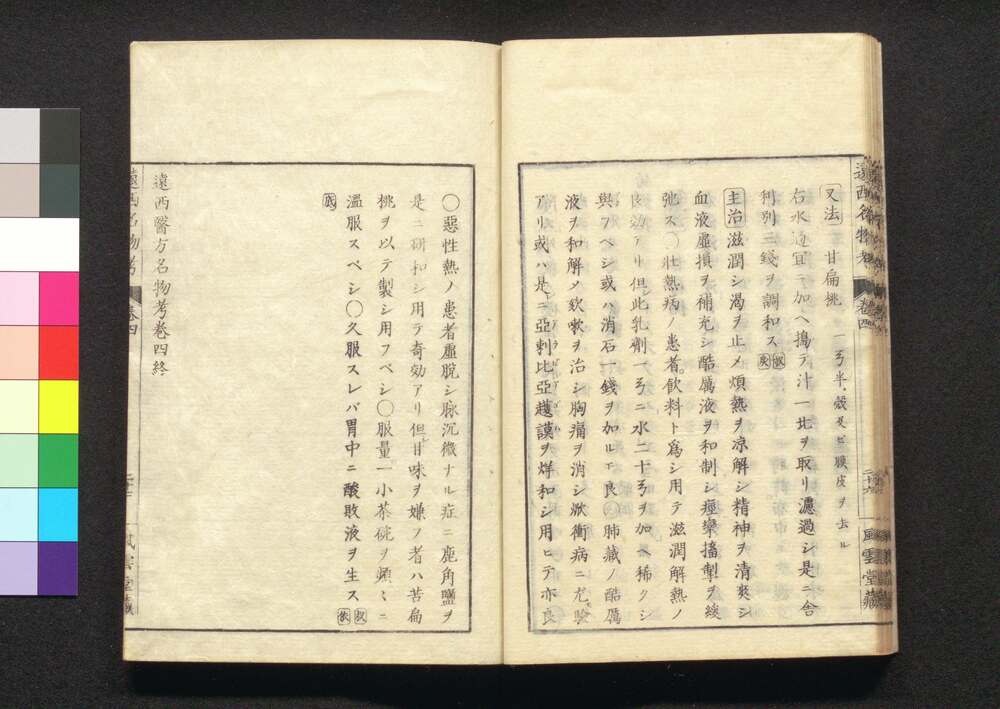 又法 甘扁桃 一弓半、殻及ビ膜皮ヲ去ル
右水適宜ニ加ヘ搗テ汁一比ヲ取リ濾過シ是ニ舎
利別三錢ヲ調和ス
主治 滋潤シ渇ヲ止メ煩熱ヲ涼解シ精神ヲ清爽シ
血液虚損ヲ補充シ酷厲液ヲ和制シ痙攣搐掣ヲ緩
弛ス〇壮熱病ノ患者飲料ト爲シ用テ滋潤解熱ノ
良効アリ但此乳劑一弓ニ水二十弓ヲ加ヘ稀クシ
與フベシ或ハ消石一錢ヲ加ルモ良〇肺藏ノ酷厲
液ヲ和解メ欬嗽ヲ治シ胸痛ヲ消シ焮衝病ニ尤驗
アリ或ハ是ニ亞剌比亞護謨ヲ烊和シ用ヒテ亦良
遠西名物考 卷四 二十六 風雲堂藏
〇惡性熱ノ患者虚脱シ脉沉微ナル症ニ鹿角鹽ヲ
是ニ研和シ用テ奇効アリ但甘味ヲ嫌フ者ハ苦扁
桃ヲ以テ製シ用フベシ〇服量一小茶碗ヲ頻々ニ
溫服スベシ〇久服スレバ胃中ニ酸敗液ヲ生ス
遠西醫方名物考卷四終
遠西名物考 卷四 風雲堂藏